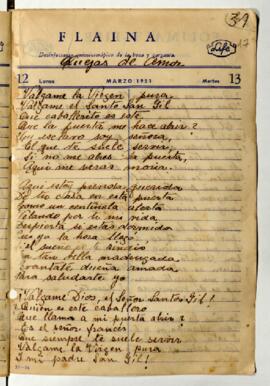 39
FLAINA
Desinfectante antimicrobiano de la boca y garganta
"Life"
17
Quejas de Amor
12 Lunes MARZO 1951 Martes 13
Válgame la Virgen pura
Válgame el Santo San Gil
Qué caballerito es este
Que la puerta me hace abrir?
Tu esclavo soy, señora,
El que te suele servir
Si no me abres la puerta,
Aquí me verás morir.
Aquí estoy preciosa querida
De tu casa en esta puerta
Como un centinela alerta
Velando por tu vida
Despierta si estás dormida
ya la hora llegó
el sueño
tan bella madrugada
Levántate dueña amada
Para saludarte yo
Válgame Dios, el Señor Santos Gil!
Quién es este caballero
Que llama a mi puerta abrir?
Es el señor francés
Que siempre te suele servir
Válgame la Virgen pura
I mi padre San Gil!